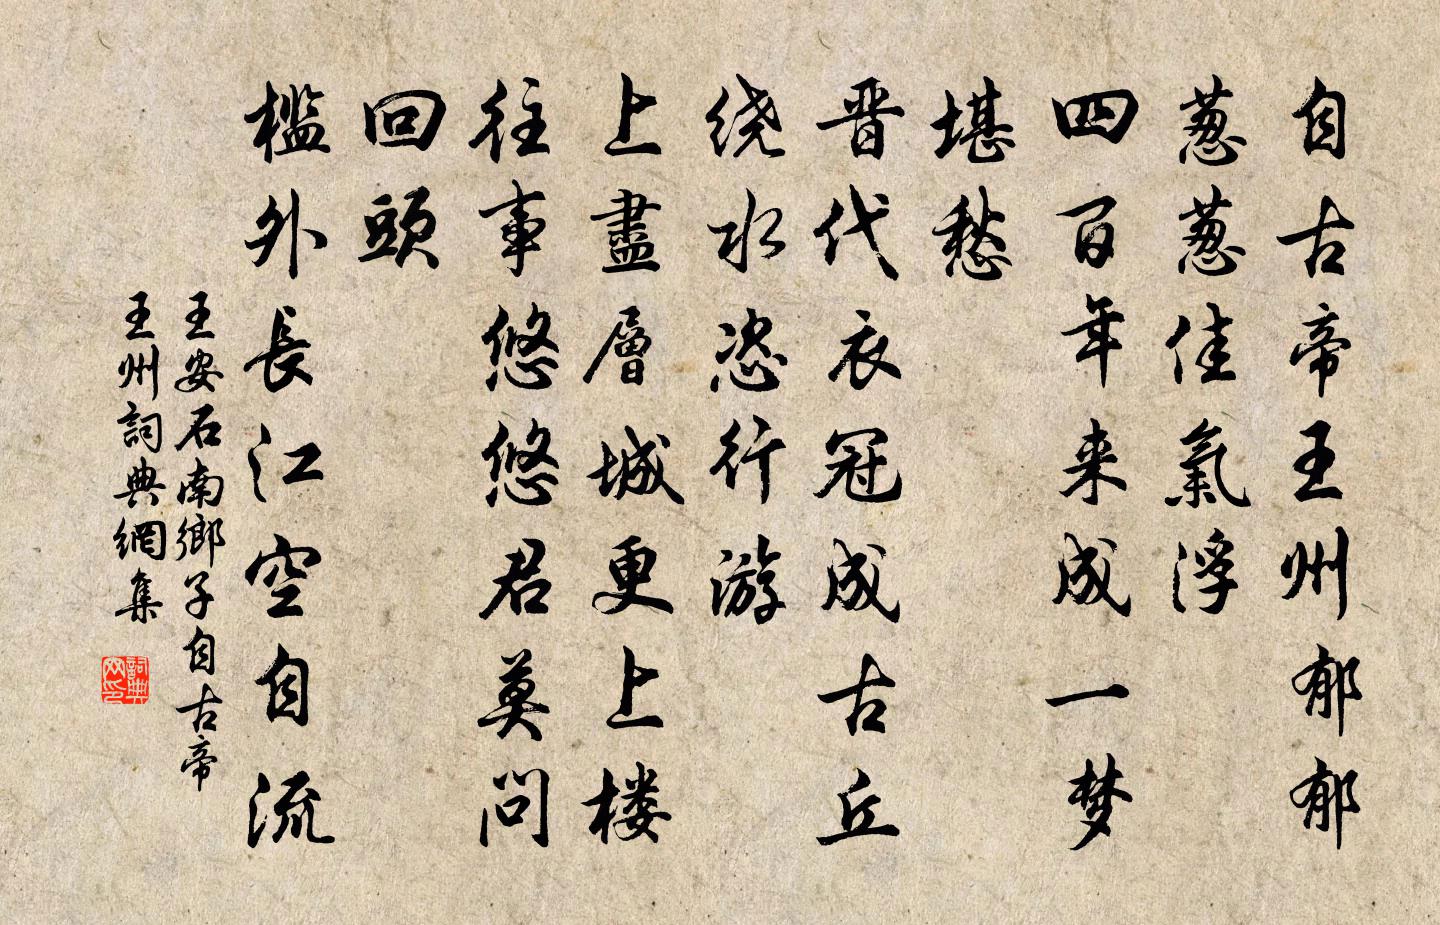 自古帝王州郁郁
葱葱佳氣浮
四百年来成一梦
堪愁
晋代衣冠成古丘
绕水恣行游
上盡層城更上楼
往事悠悠君莫问
回頭
槛外長江空自流
王安石南鄉子自古帝
王州詞典網集
詞典网印